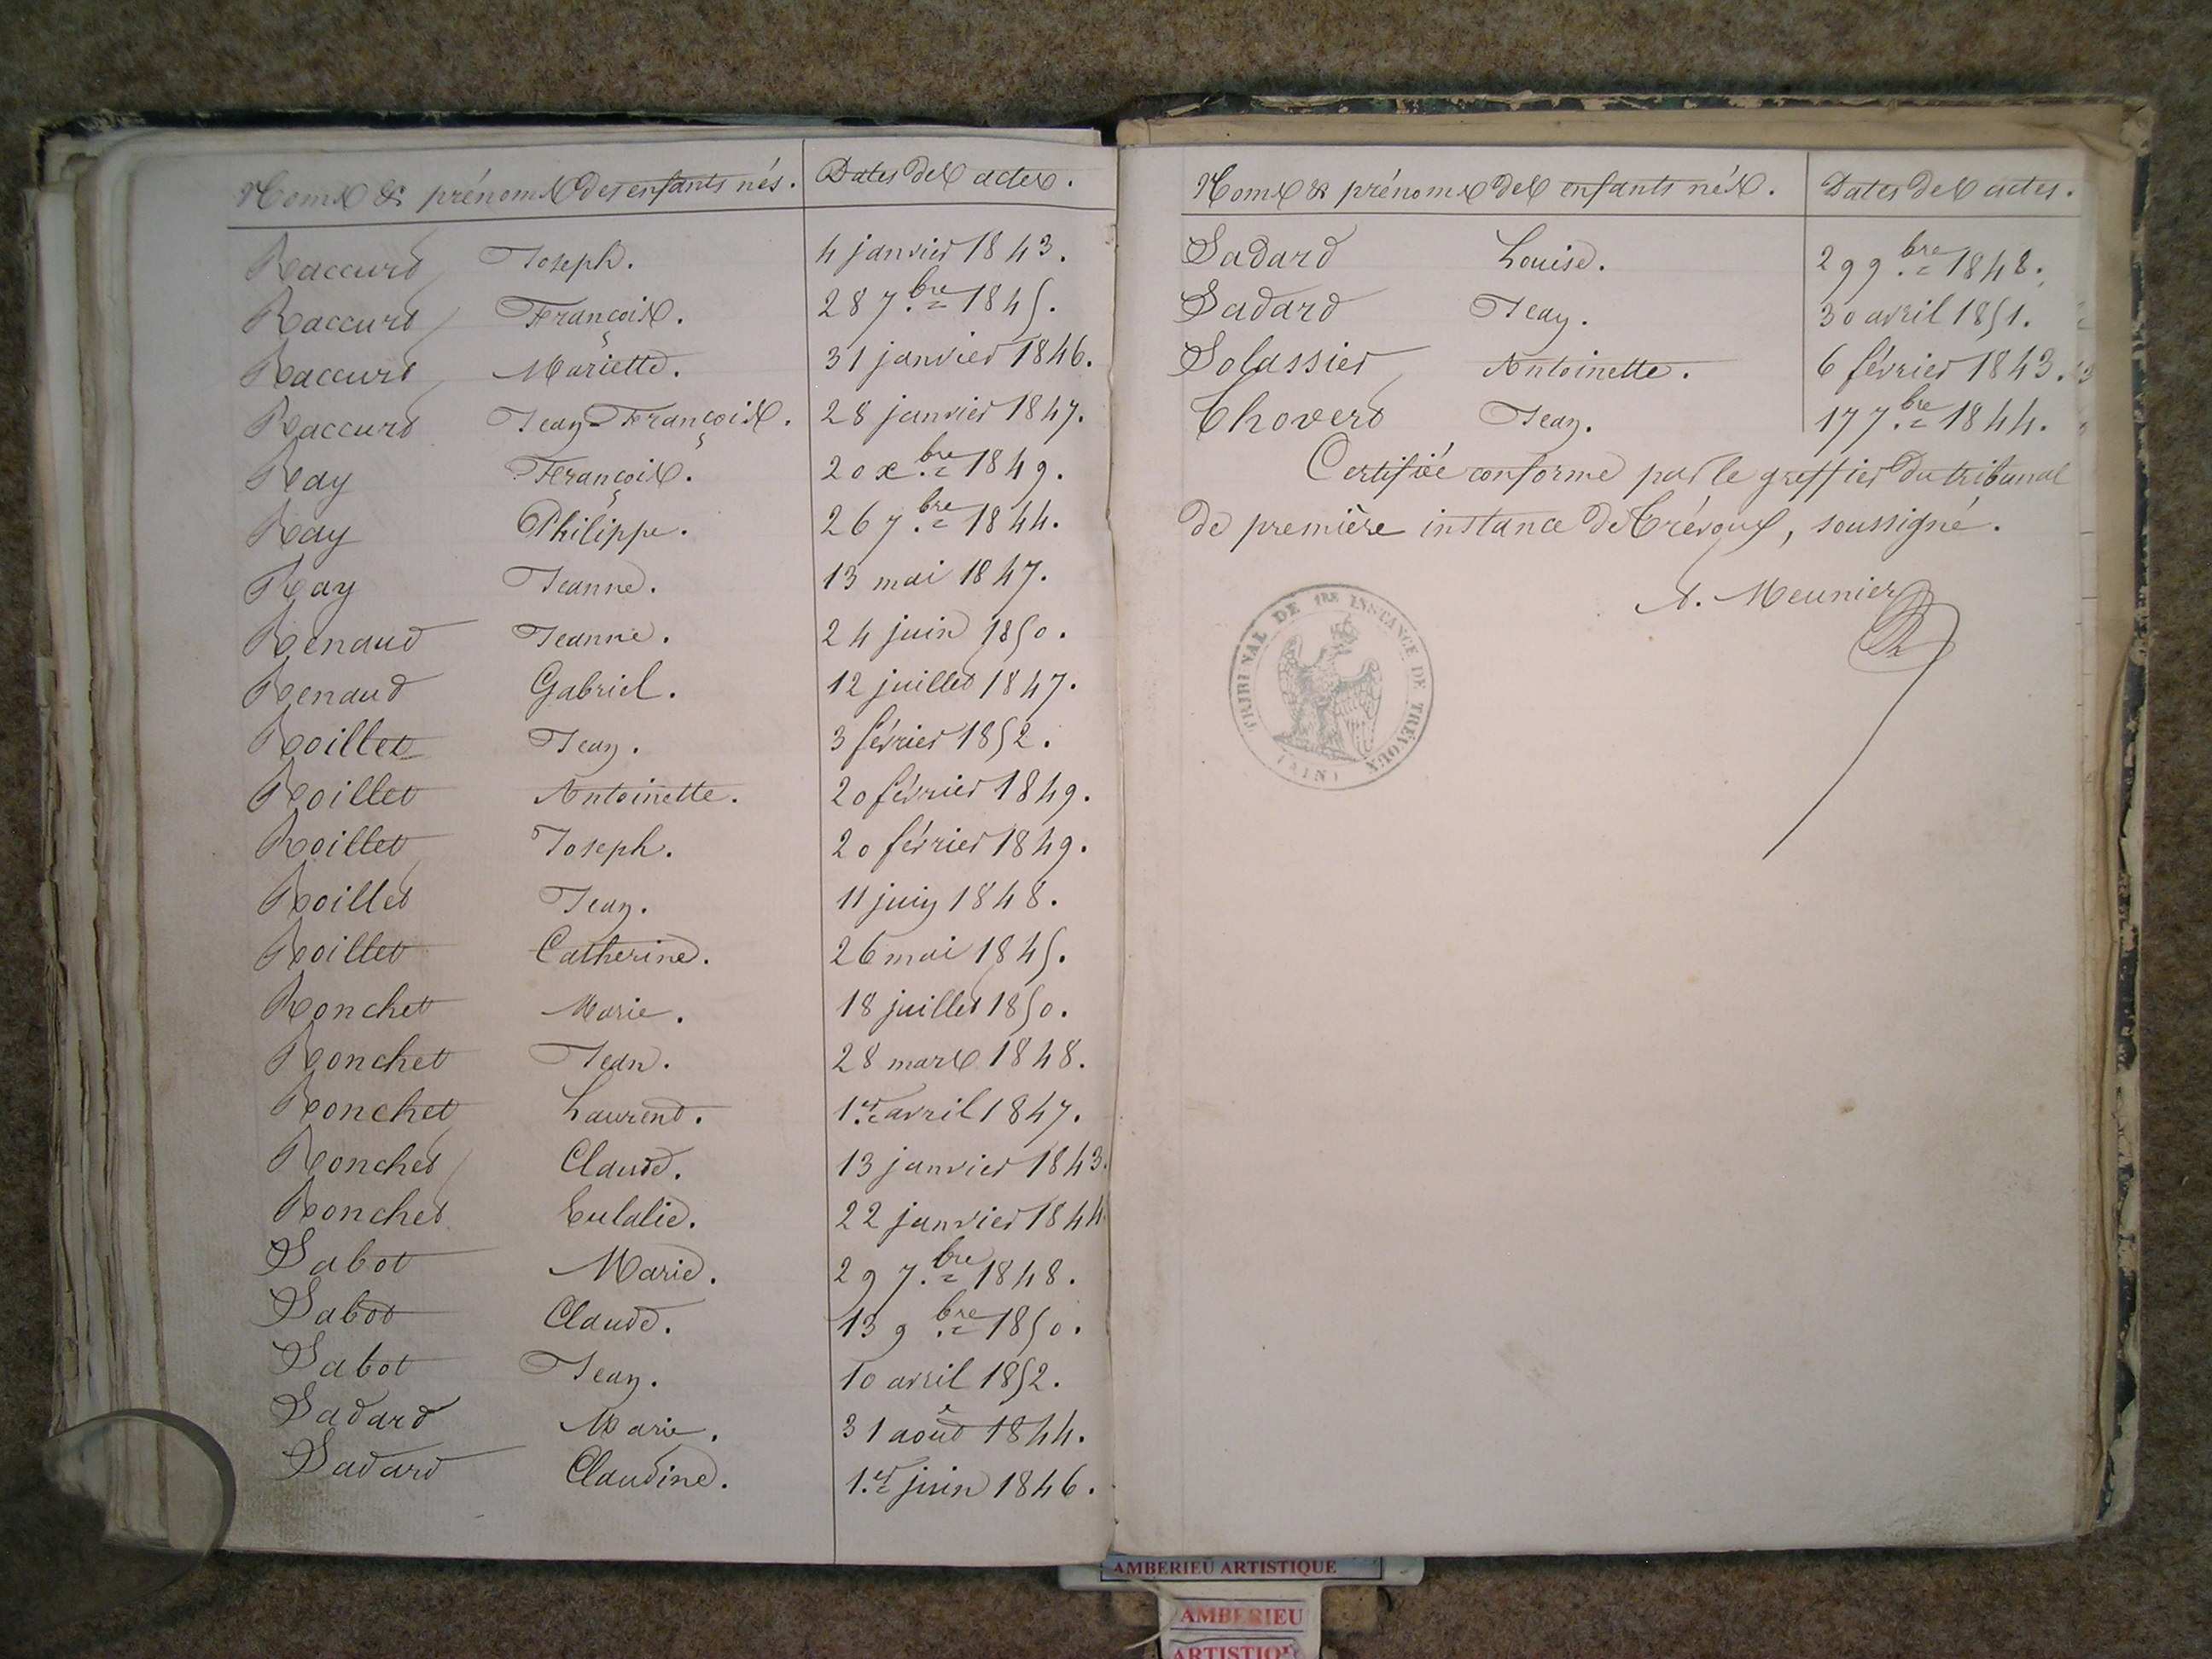 Noms & prénoms des enfants nés. Dates des actes.
Raccurt Joseph. 4 janvier 1843.
Raccurt François. 28 7.bre 1845.
Raccurt Mariette. 31 janvier 1846.
Raccurt Jean-François. 28 janvier 1847.
Ray François. 20 x.bre 1849.
Ray Philippe. 26 7.bre 1844.
Ray Jeanne. 13 mai 1847.
Renaud Jeanne. 24 juin 1850.
Renaud Gabriel. 12 juillet 1847.
Roillet Jean. 3 février 1852.
Roillet Antoinette. 20 février 1849.
Roillet Joseph. 20 février 1849.
Roillet Jean. 11 juin 1848.
Roillet Catherine. 26 mai 1845.
Ronchet Marie. 18 juillet 1850.
Ronchet Jean. 28 mars 1848.
Ronchet Laurent. 1.er avril 1847.
Ronchet Claude. 13 janvier 1843.
Ronchet Eulalie. 22 janvier 1844
Sabot Marie. 29 7.bre 1848.
Sabot Claude. 13 9.bre 1850.
Sabot Jean. 10 avril 1852.
Sadard Marie. 31 août 1844.
Sadard Claudine. 1.er juin 1846.
Noms & prénoms des enfants nés. Dates des actes.
Sadard Louise. 29 9.bre 1848.
Sadard Jean. 30 avril 1851.
Solassier Antoinette. 6 février 1843.
Thovert Jean. 17 7.bre 1844.
Certifié conforme par le greffier du tribunal
de première instance de Trévoux, soussigné.
A. Meunier
TRIBUNAL DE 1RE INSTANCE DE TRÉVOUX
(AIN)
AMBERIEU ARTISTIQUE
AMBERIEU